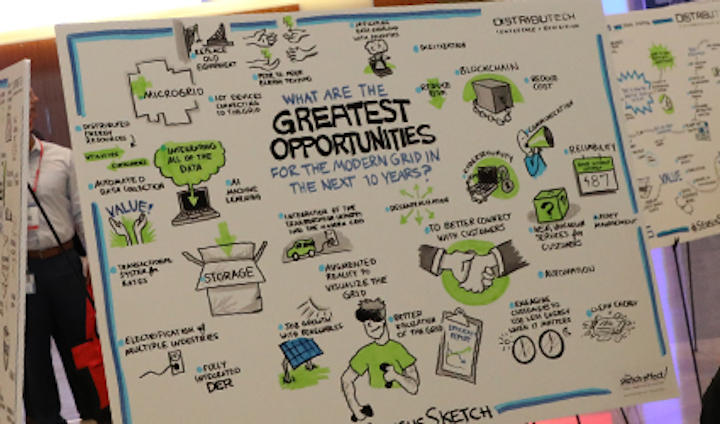 DISTRIBUTECH
CONFERENCE + EXHIBITION
REPLACE
OLD
EQUIPMENT
DIGITIZATION
MICROGRID
PEER TO PEER
ENERGY TRADING
IOT DEVICES
CONNECTING
TO THE GRID
BLOCKCHAIN
REDUCE
RISK
REDUCE
COST
WHAT ARE THE
GREATEST
OPPORTUNITIES
FOR THE MODERN GRID IN
THE NEXT 10 YEARS?
COMMUNICATION
DISTRIBUTED
ENERGY
RESOURCES
INTEGRATING
ALL OF THE
DATA
AUTOMATED
DATA COLLECTION
AI
MACHINE
LEARNING
CYBERSECURITY
RELIABILITY
487
VALUE!
TO BETTER CONNECT
WITH CUSTOMERS
SERVICES FOR
CUSTOMERS
ASSET
MANAGEMENT
TRANSACTIONAL
SYSTEM FOR
RATES
STORAGE
AUGMENTED
REALITY TO
VISUALIZE THE
GRID
AUTOMATION
JOB GROWTH
WITH RENEWABLES
BETTER
UTILIZATION
OF THE GRID
REPORT
ENGAGING
CUSTOMERS TO
USE LESS ENERGY
WHEN IT MATTERS
CLEAN ENERGY
ELECTRIFICATION OF
MULTIPLE INDUSTRIES
FULLY
INTEGRATED
DER
SKETCH
VALUE